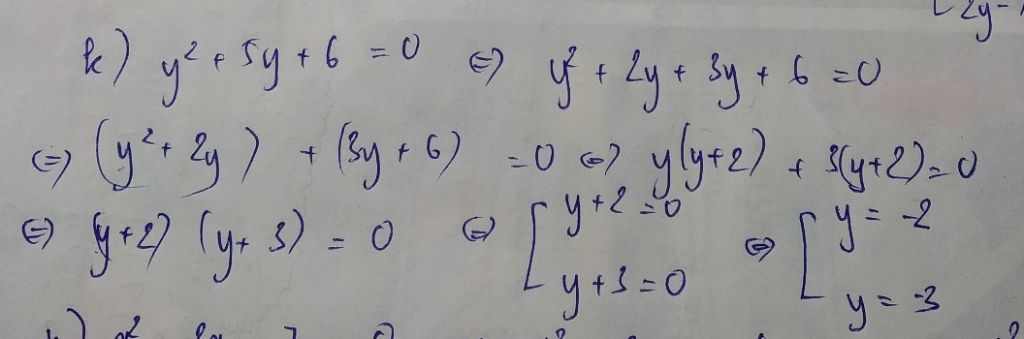 [2y-
k) y² + 5y + 6 = 0 ⇔ y² + 2y + 3y + 6 = 0
⇔ (y² + 2y) + (3y + 6) = 0 ⇔ y(y+2) + 3(y+2) = 0
⇔ (y+2) (y+3) = 0 ⇔ [ y+2=0 ⇔ [ y = -2
y+3=0 y = -3